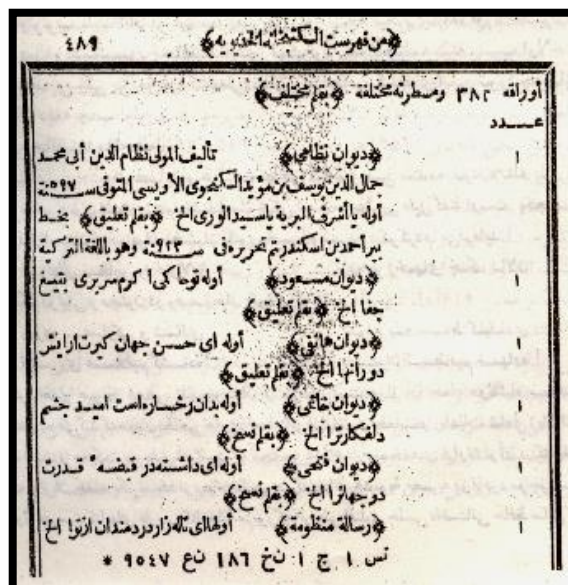 ﴿من فهرست الكتبخانه الخديويه﴾ ٤٨٩
أوراقه ٣٨٢ ومسطرته مختلفة ﴿بقلم مختلف﴾
عـــدد
١ ﴿ديوان نظامى﴾ تأليف المولى نظام الدين أبى محمد
جمال الدين يوسف بن مؤيد الكنجوى الأويسى المتوفى سنة ٥٩٧
أوله يا أشرف البرية يا سيد الورى الخ ﴿بقلم تعليق﴾ بخط
مير أحمد بن اسكندر تم تحريره فى سنة ٩٢٣ وهو باللغة التركية
١ ﴿ديوان مسعود﴾ أوله توحاكى اكرم سربرى بتيغ
جفا الخ ﴿بقلم تعليق﴾
١ ﴿ديوان هاتفى﴾ أوله اى حسن جهان كيرت ارايش
دورانها الخ ﴿بقلم تعليق﴾
١ ﴿ديوان﴾ أوله بدان رخساره است اميد چشم
دلفكار ترا الخ ﴿بقلم نسخ﴾
١ ﴿ديوان فتحى﴾ أوله اى داشته در قبضهٔ قدرت
دو جهانرا الخ ﴿بقلم نسخ﴾
١ ﴿رسالة منظومة﴾ أولها اى ناله زار دردمندان از تو الخ
نس ١ ج ١ نخ ١٨٦ نع ٩٥٤٧ *